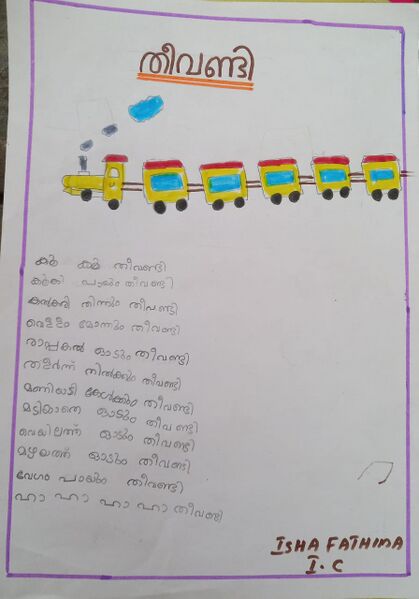 തീവണ്ടി
കൂ കൂ തീവണ്ടി
കൂകി പായും തീവണ്ടി
കൽക്കരി തിന്നും തീവണ്ടി
വെള്ളം മോന്തും തീവണ്ടി
രാപ്പകൽ ഓടും തീവണ്ടി
തളർന്ന് നിൽക്കും തീവണ്ടി
മണിയടി കേൾക്കും തീവണ്ടി
മടിക്കാതെ ഓടും തീവണ്ടി
വെയിലത്ത് ഓടും തീവണ്ടി
മഴയത്ത് ഓടും തീവണ്ടി
വേഗം പായും തീവണ്ടി
ഹാ ഹാ ഹാ ഹാ തീവണ്ടി
ISHA FATHIMA
I. C